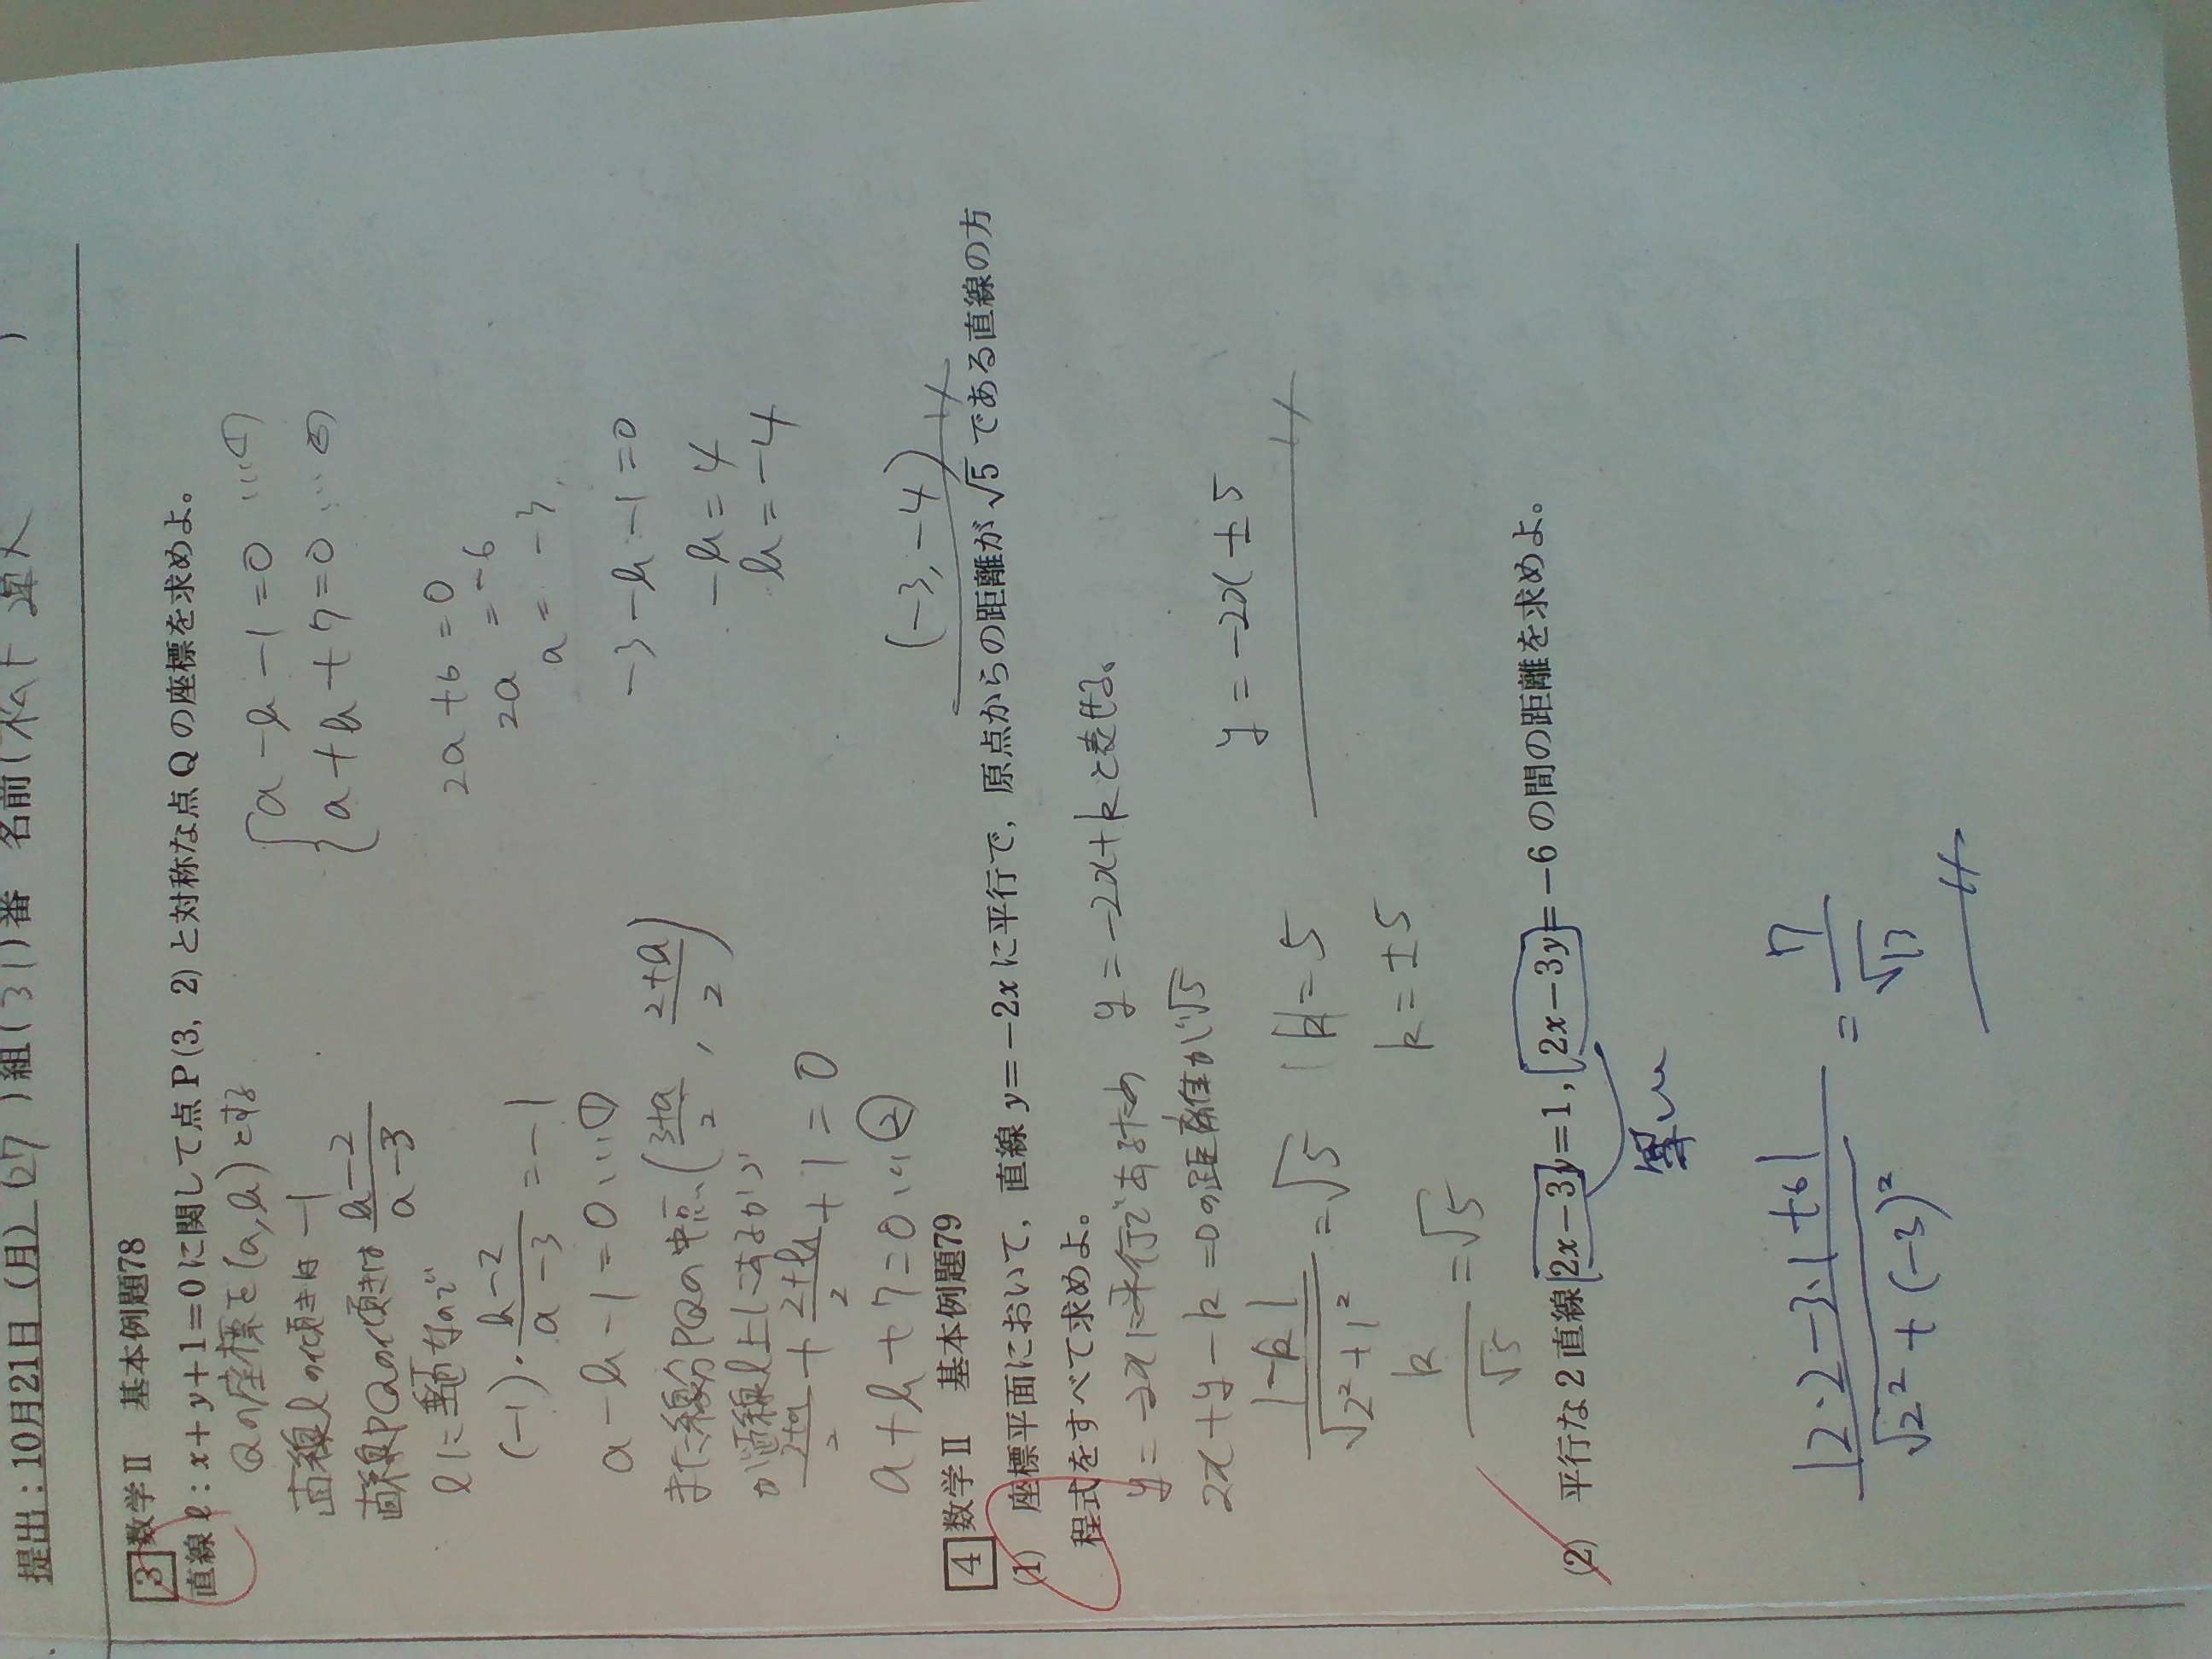 提出：10月21日（月）（27）組（31）番 名前（
3 数学Ⅱ 基本例題78
直線ℓ：x＋y＋1＝0に関して点P(3, 2)と対称な点Qの座標を求めよ。
Qの座標を(a,b)とする
直線ℓの傾きは −1
直線PQの傾きは b−2/a−3
ℓに垂直なので
(−1)・b−2/a−3 = −1
a−b−1=0 …①
また線分PQの中点 (3+a/2, 2+a/2)
が直線ℓ上にあるから
3+a/2 + 2+b/2 +1=0
a+b+7=0 …②
{a−b−1=0 …①
a+b+7=0 …②
2a+6=0
2a =−6
a=−3
−3−b−1=0
−b=4
b=−4
(−3, −4)
4 数学Ⅱ 基本例題79
(1) 座標平面において，直線y＝−2xに平行で，原点からの距離が√5である直線の方
程式をすべて求めよ。
y=−2xに平行であるため y=−2x+kと表せる。
2x+y−k=0の距離が√5
|−k|/√2²+1² =√5 |k|=5
k/√5 =√5 k=±5
y=−2x±5
(2) 平行な2直線2x−3y＝1，2x−3y＝−6の間の距離を求めよ。
|2・2−3・1+6|/√2²+(−3)² = 7/√13